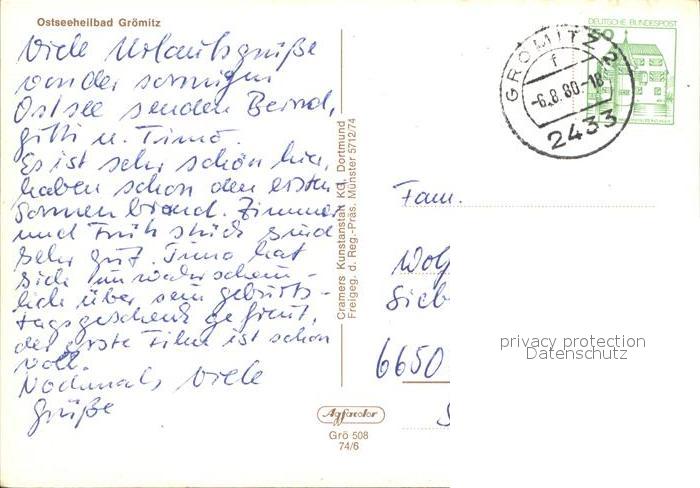 Ostseeheilbad Grömitz
Viele Urlaubsgrüße
von der sonnigen
Ostsee senden Bernd,
Gitti u. Timo.
Es ist sehr schön hier,
haben schon den ersten
Sonnenbrand. Zimmer
und Frühstück sind
sehr gut. Timo hat
sich unwahrschein-
lich über sein Geburts-
tagsgeschenk gefreut,
der erste Film ist schon
voll.
Nochmals viele
Grüße
Cramers Kunstanstalt KG, Dortmund
Freigeg. d. Reg.-Präs. Münster 5712/74
Agfacolor
Grö 508
74/6
DEUTSCHE BUNDESPOST
50
GRÖMITZ 2
f
-6.8.80-18
2433
Fam.
Wolf
Sieb
6650
privacy protection
Datenschutz